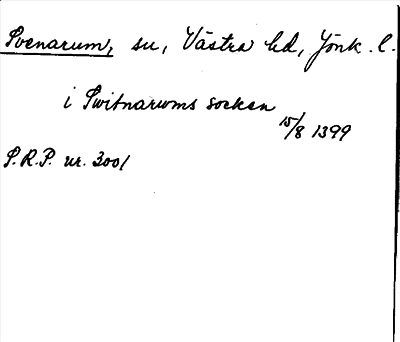 Svenarum, sn, Västra hd, Jönk. l.
i Switnarwms socken
15/8 1399
S.R.P. nr. 3001